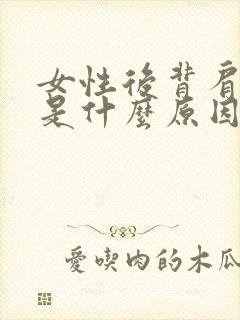 女性後背肩
是什麼原因
愛喫肉的木瓜